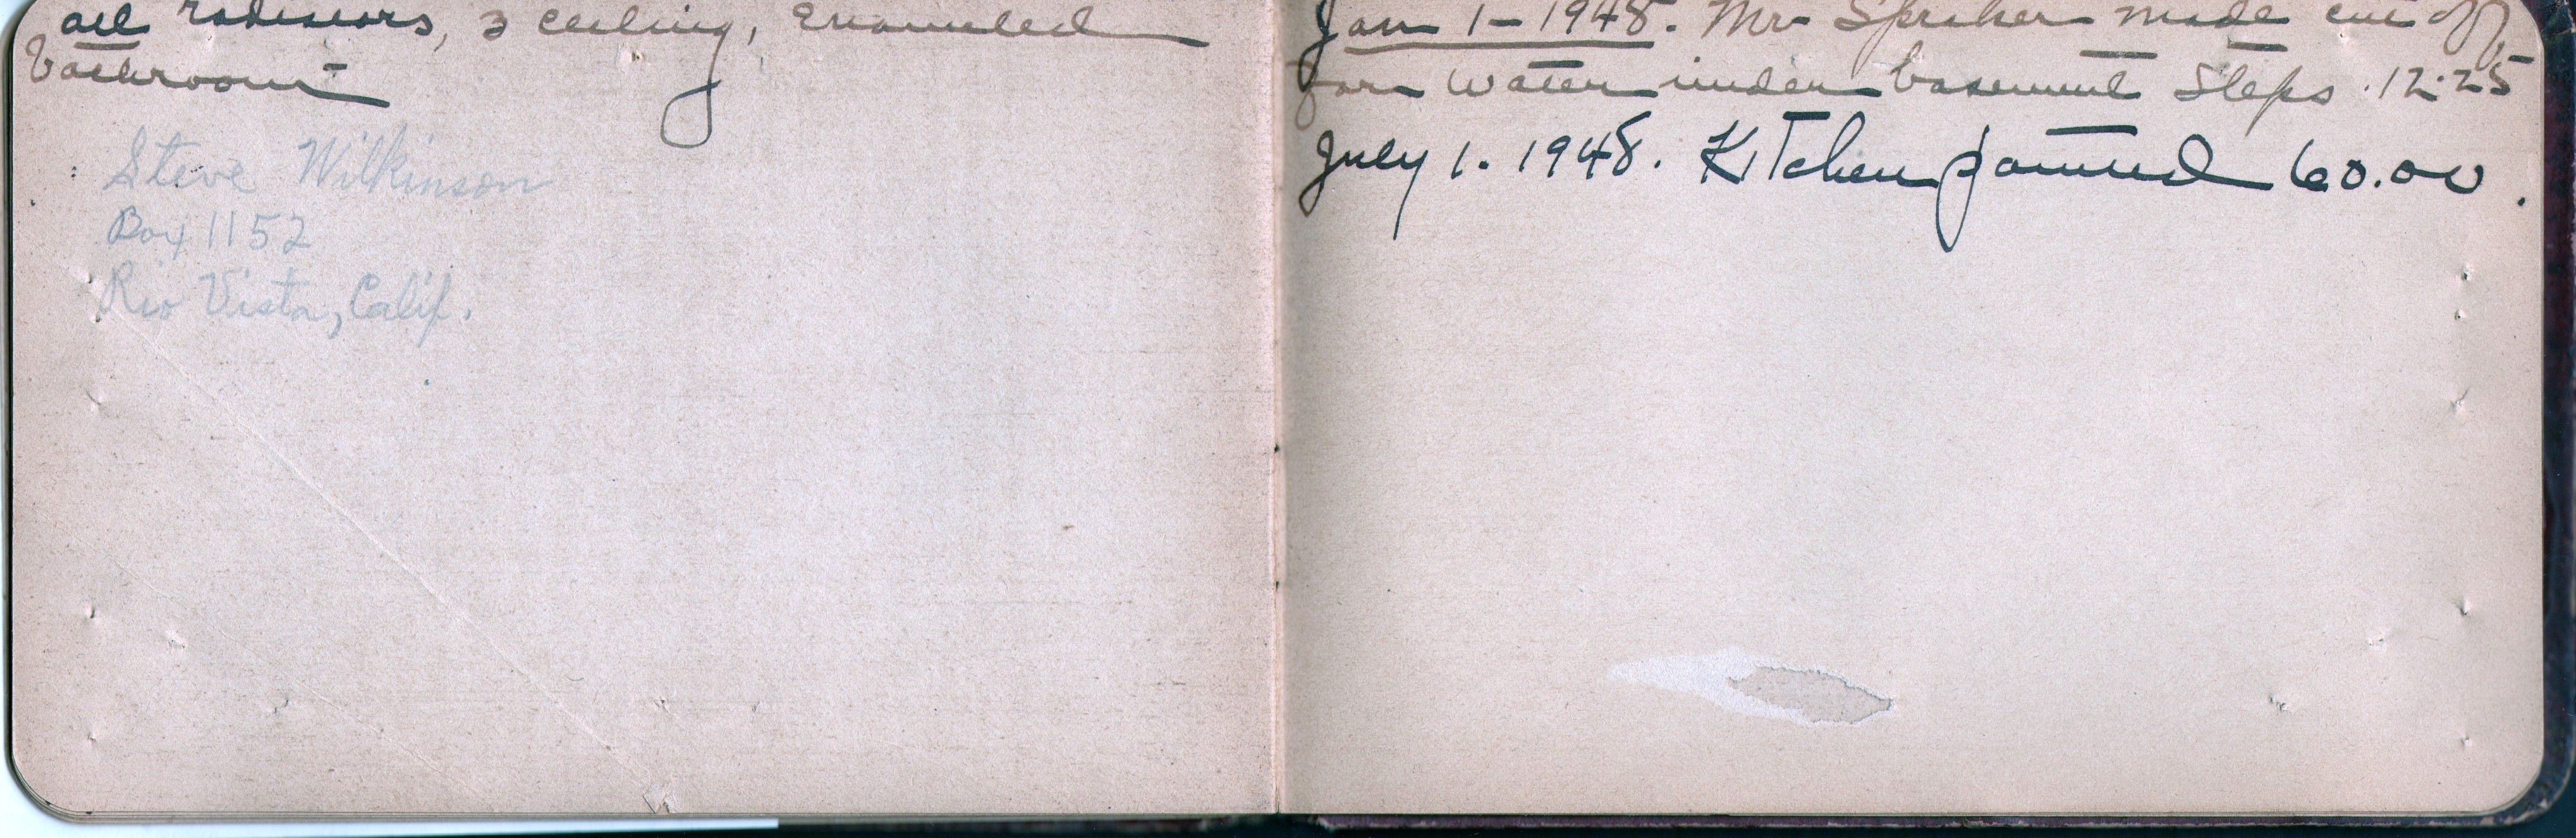 all radiators, 3 ceiling, enameled
bathroom
Steve Wilkinson
Box 1152
Rio Vista, Calif.
Jan 1 - 1948. Mr Spraker made cut off
for water under basement steps . 12.25
July 1. 1948. Kitchen painted 60.00.